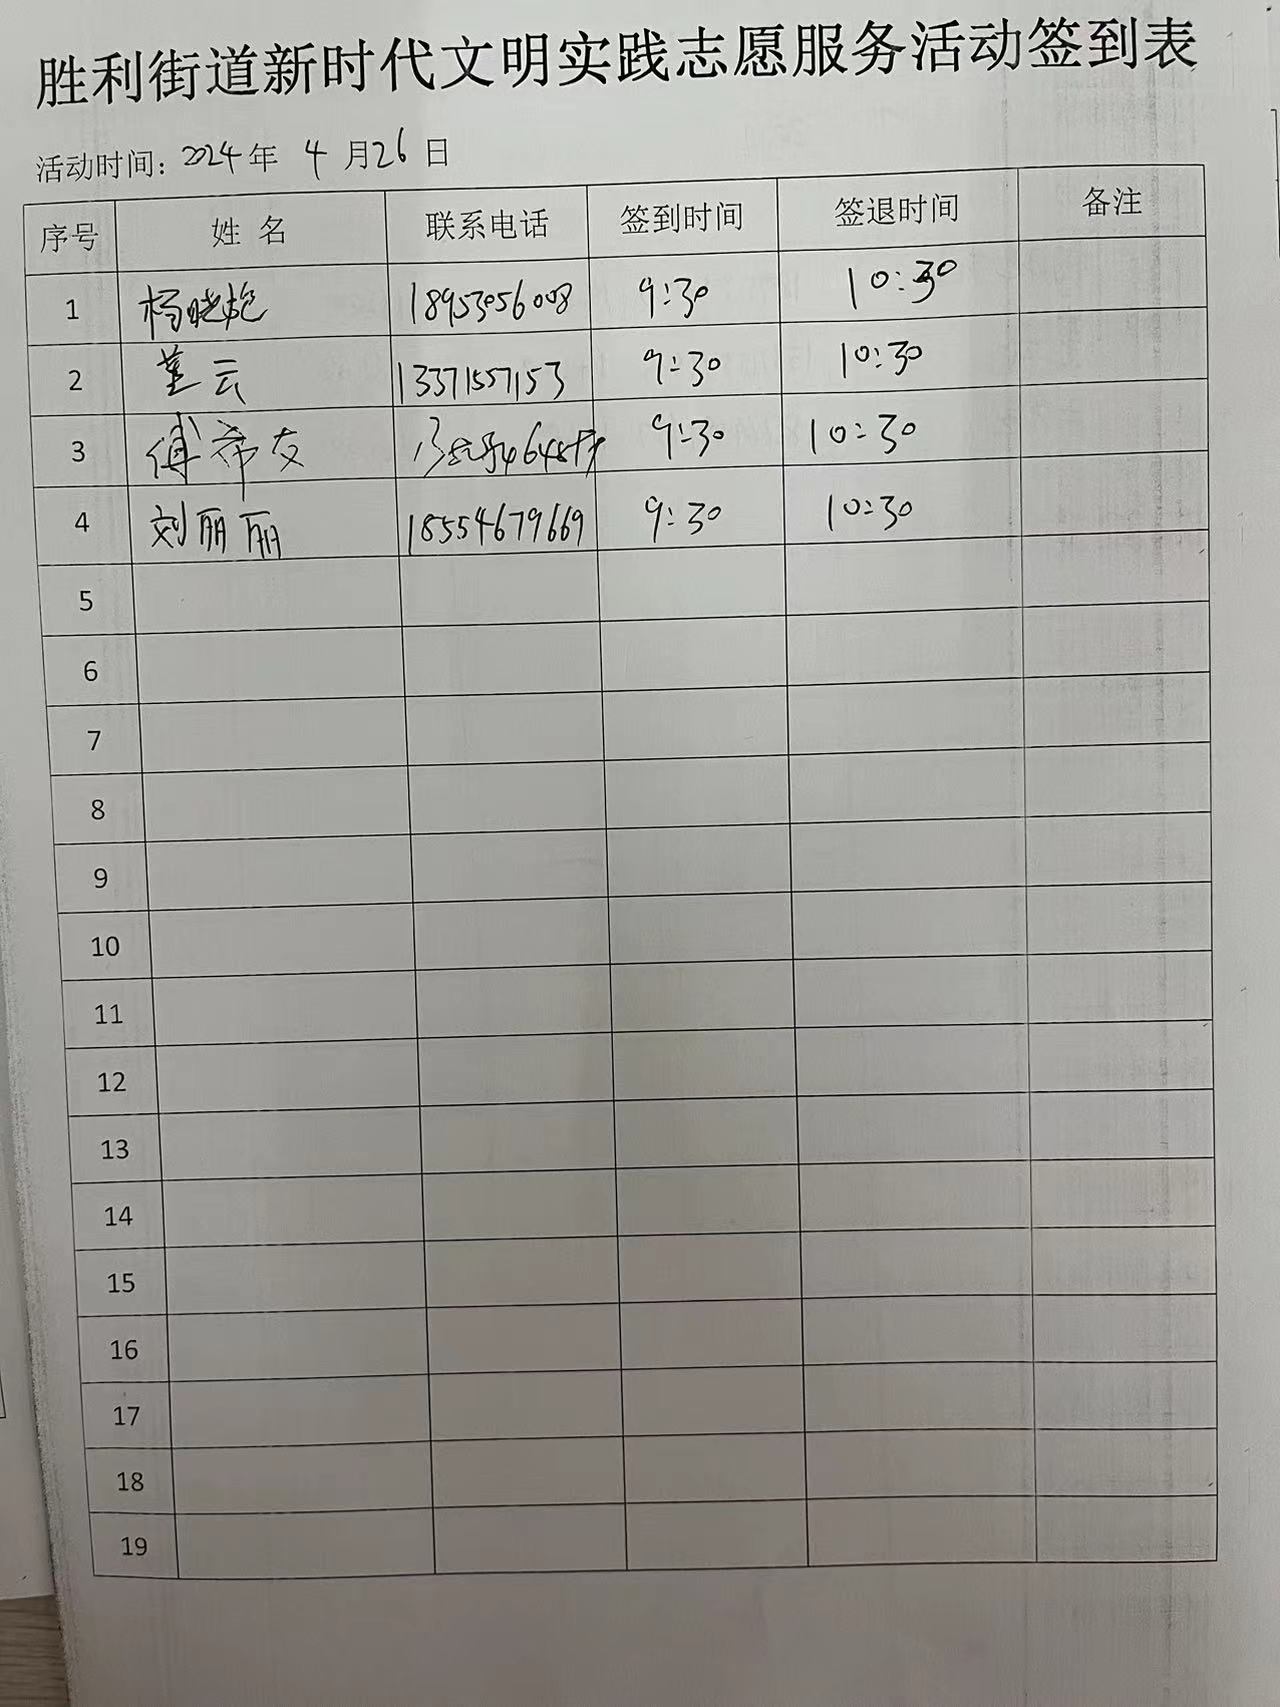 胜利街道新时代文明实践志愿服务活动签到表
活动时间：2024年 4 月26 日
序号 姓 名 联系电话 签到时间 签退时间 备注
1 杨晓艳 18953056008 9:30 10:30
2 董云 13371557153 9:30 10:30
3 傅希友 9:30 10:30
4 刘丽丽 18554679669 9:30 10:30
5
6
7
8
9
10
11
12
13
14
15
16
17
18
19